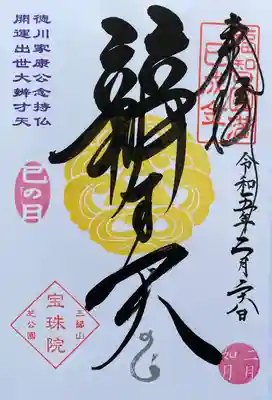 奉拝
巳成金
辨才天
令和五年二月十六日
徳川家康公念持仏
開運出世大辨才天
巳の日
三縁山
宝珠院
芝公園
二月
如月